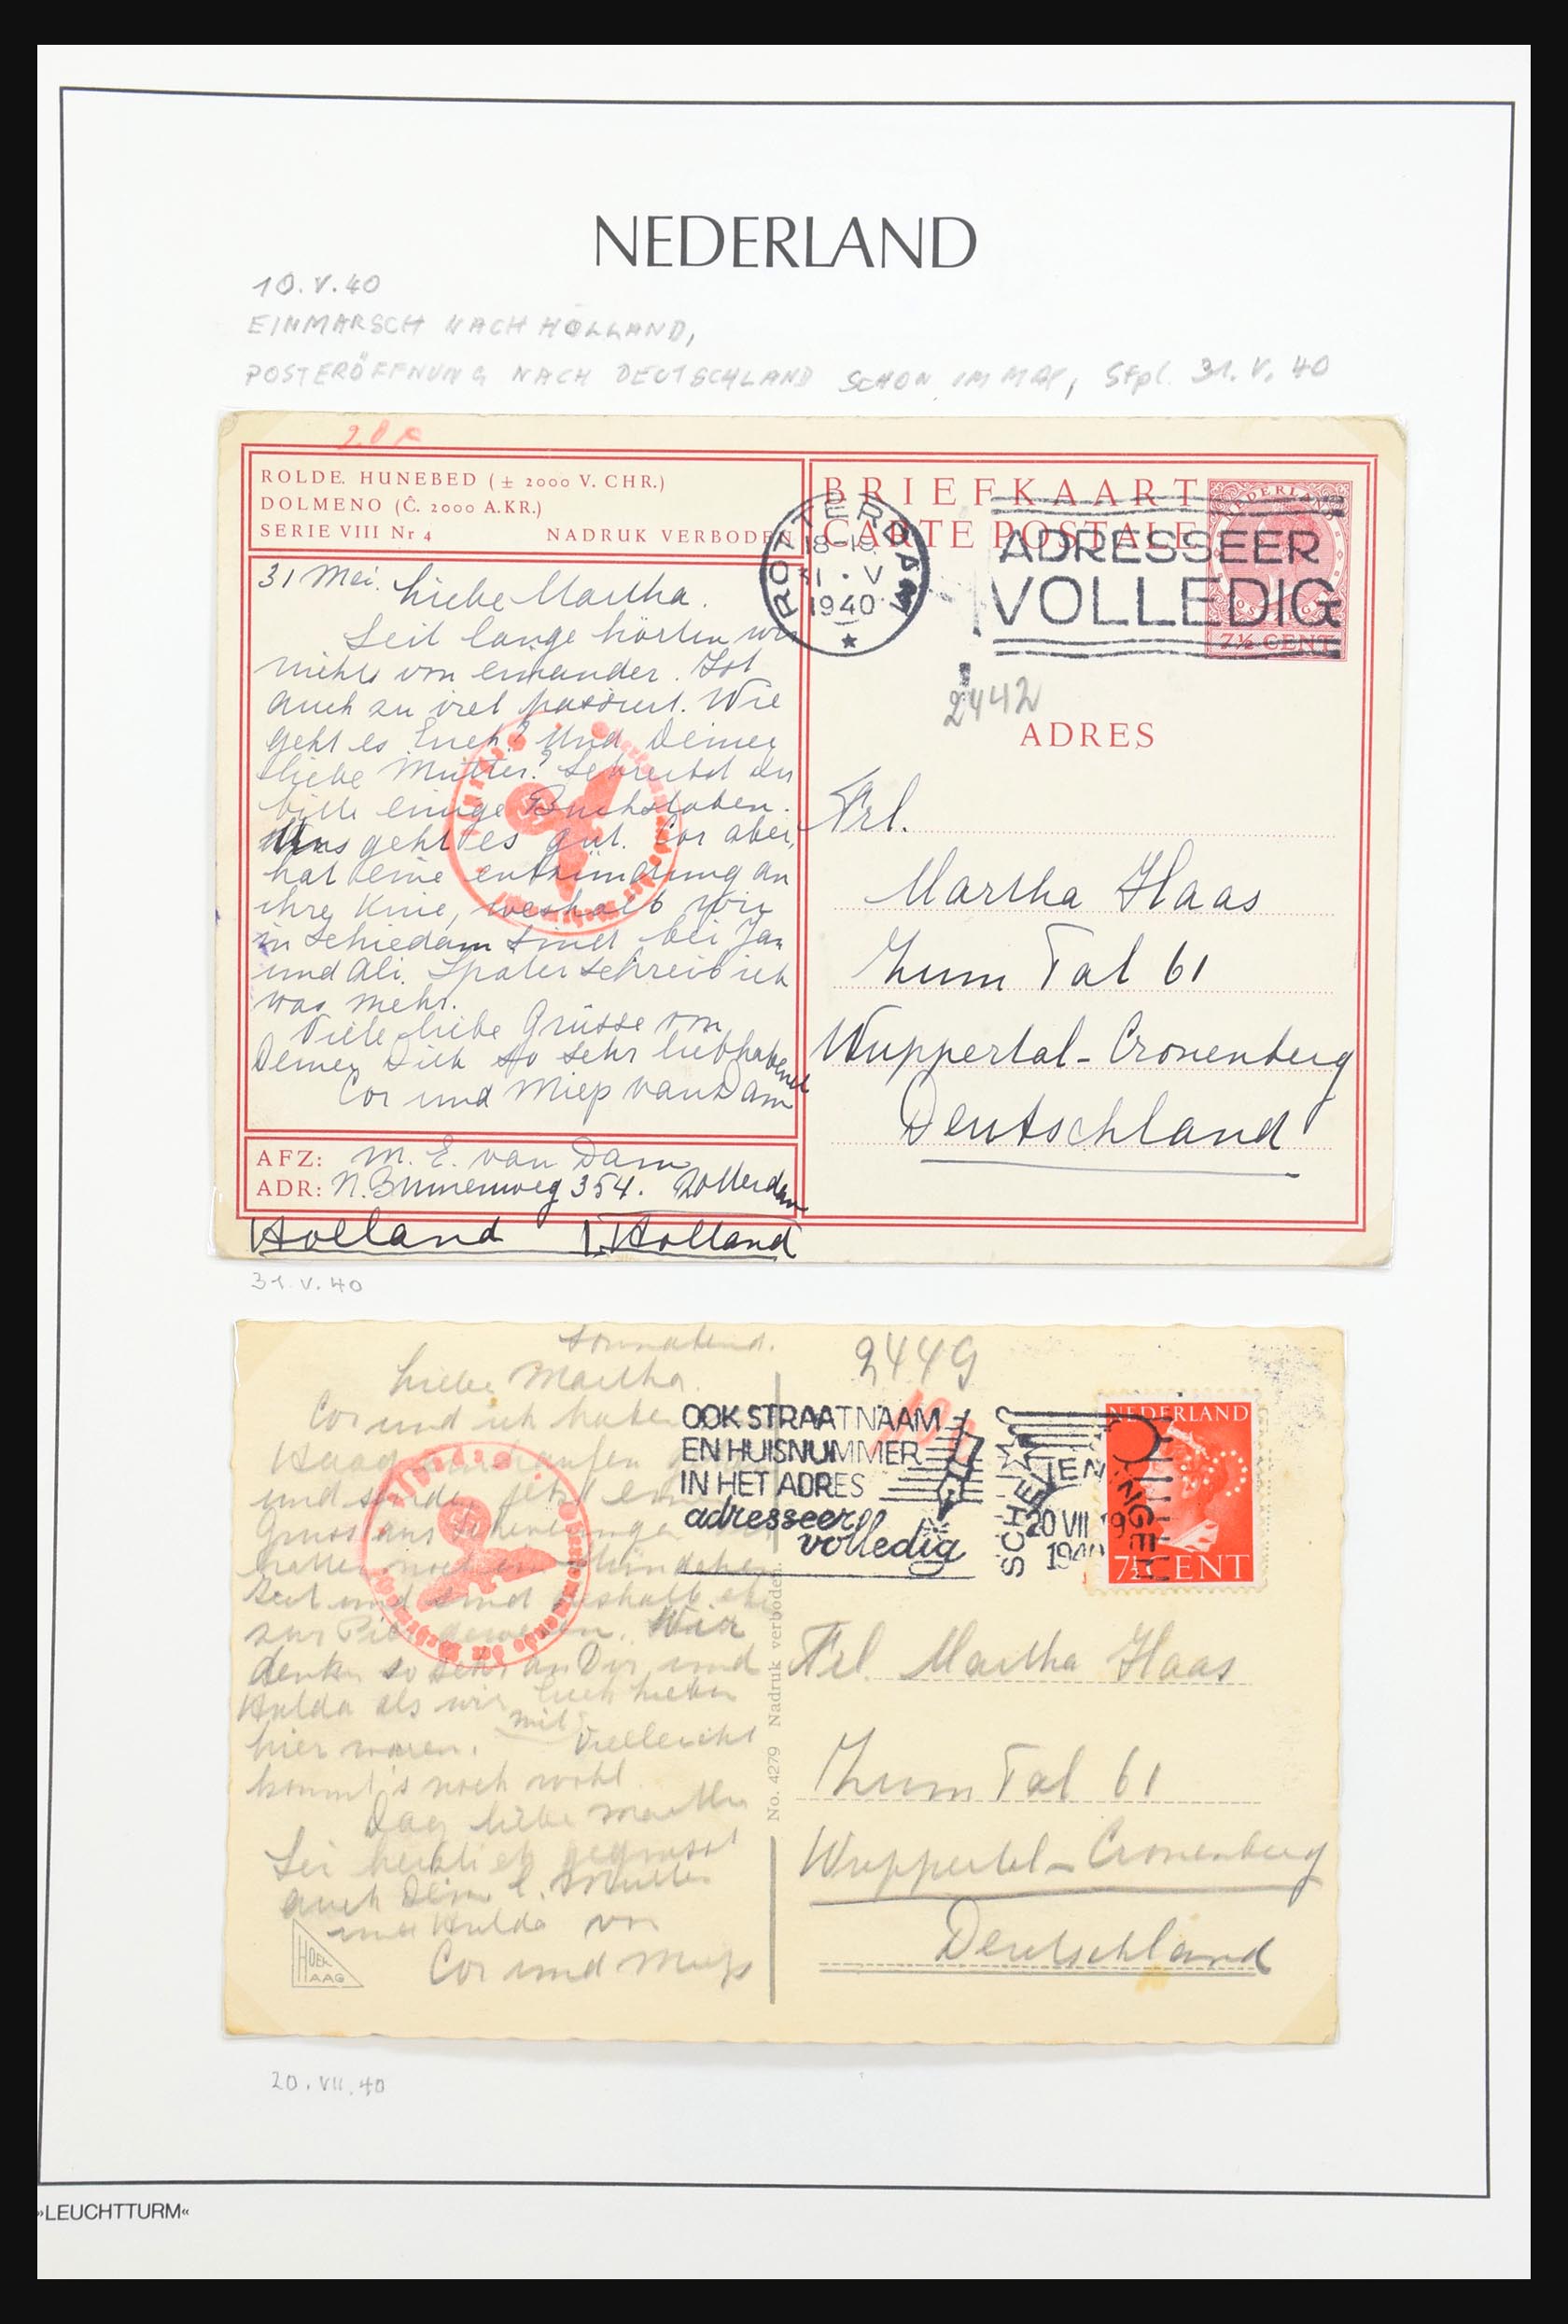 NEDERLAND
10.V.40
EINMARSCH NACH HOLLAND,
POSTERÖFFNUNG NACH DEUTSCHLAND SCHON IM MAI, Stpl. 31.V.40
ROLDE. HUNEBED (± 2000 V. CHR.)
DOLMENO (Č. 2000 A.KR.)
SERIE VIII Nr 4 NADRUK VERBODEN
31 Mei. Liebe Martha.
Seit lange hörten wir
nichts von einander. Ist
auch zu viel passiert. Wie
geht es Euch? Und Deiner
liebe Mutter? Schreibst du
bitte einige Buchstaben.
Uns geht es gut. Cor aber,
hat eine entzündung an
ihre Knie, weshalb wir
in Schiedam sind bei Jan
und Ali. Später schreib ich
was mehr.
Viele liebe Grüsse von
Deiner Dich so sehr liebhabend
Cor und Miep van Dam
AFZ: M. E. van Dam
ADR: N. Binnenweg 354. Rotterdam
Holland 1. Holland
BRIEFKAART
CARTE POSTALE
ROTTERDAM
18-19
31·V
1940
ADRESSEER
VOLLEDIG
7½ CENT
2442
ADRES
Frl.
Martha Haas
Zum Tal 61
Wuppertal-Cronenberg
Deutschland
31.V.40
Sonnabend.
Liebe Martha.
Cor und ich haben
Haag
und senden jetzt einen
Gruss aus Scheveningen
hatten noch ein Stündchen
Zeit und sind deshalb
zur Pier gewesen. Wir
denken so sehr an Dir und
Hulda als wir mit Euch lieben
hier waren. Vielleicht
kommt's noch wohl.
Dag liebe Martha
Sei herzlich gegrüsst
auch Deine l. Mutter
und Hulda von
Cor und Miep
HOEK
HAAG
No. 4279 Nadruk verboden.
2449
OOK STRAATNAAM
EN HUISNUMMER
IN HET ADRES
adresseer
volledig
SCHEVENINGEN
20 VII 19
1940
NEDERLAND
7½ CENT
Frl. Martha Haas
Zum Tal 61
Wuppertal-Cronenberg
Deutschland
20.VII.40
»LEUCHTTURM«